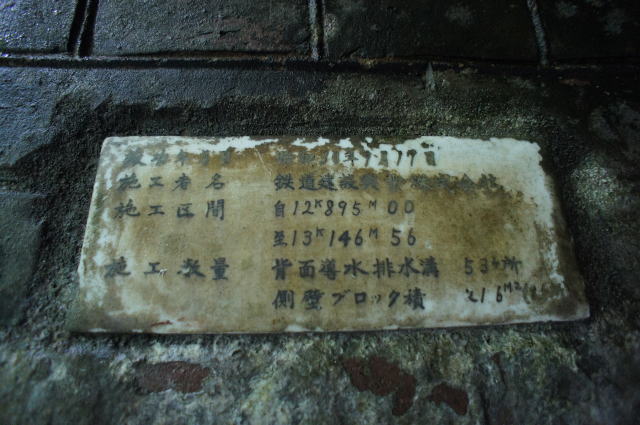 年月日 昭和31年7月19日
施工者名 鉄道建設興業株式会社
施工区間 自12K895M00
至13K146M56
施工数量 背面導水排水溝 53ヶ所
側壁ブロック積 16M2